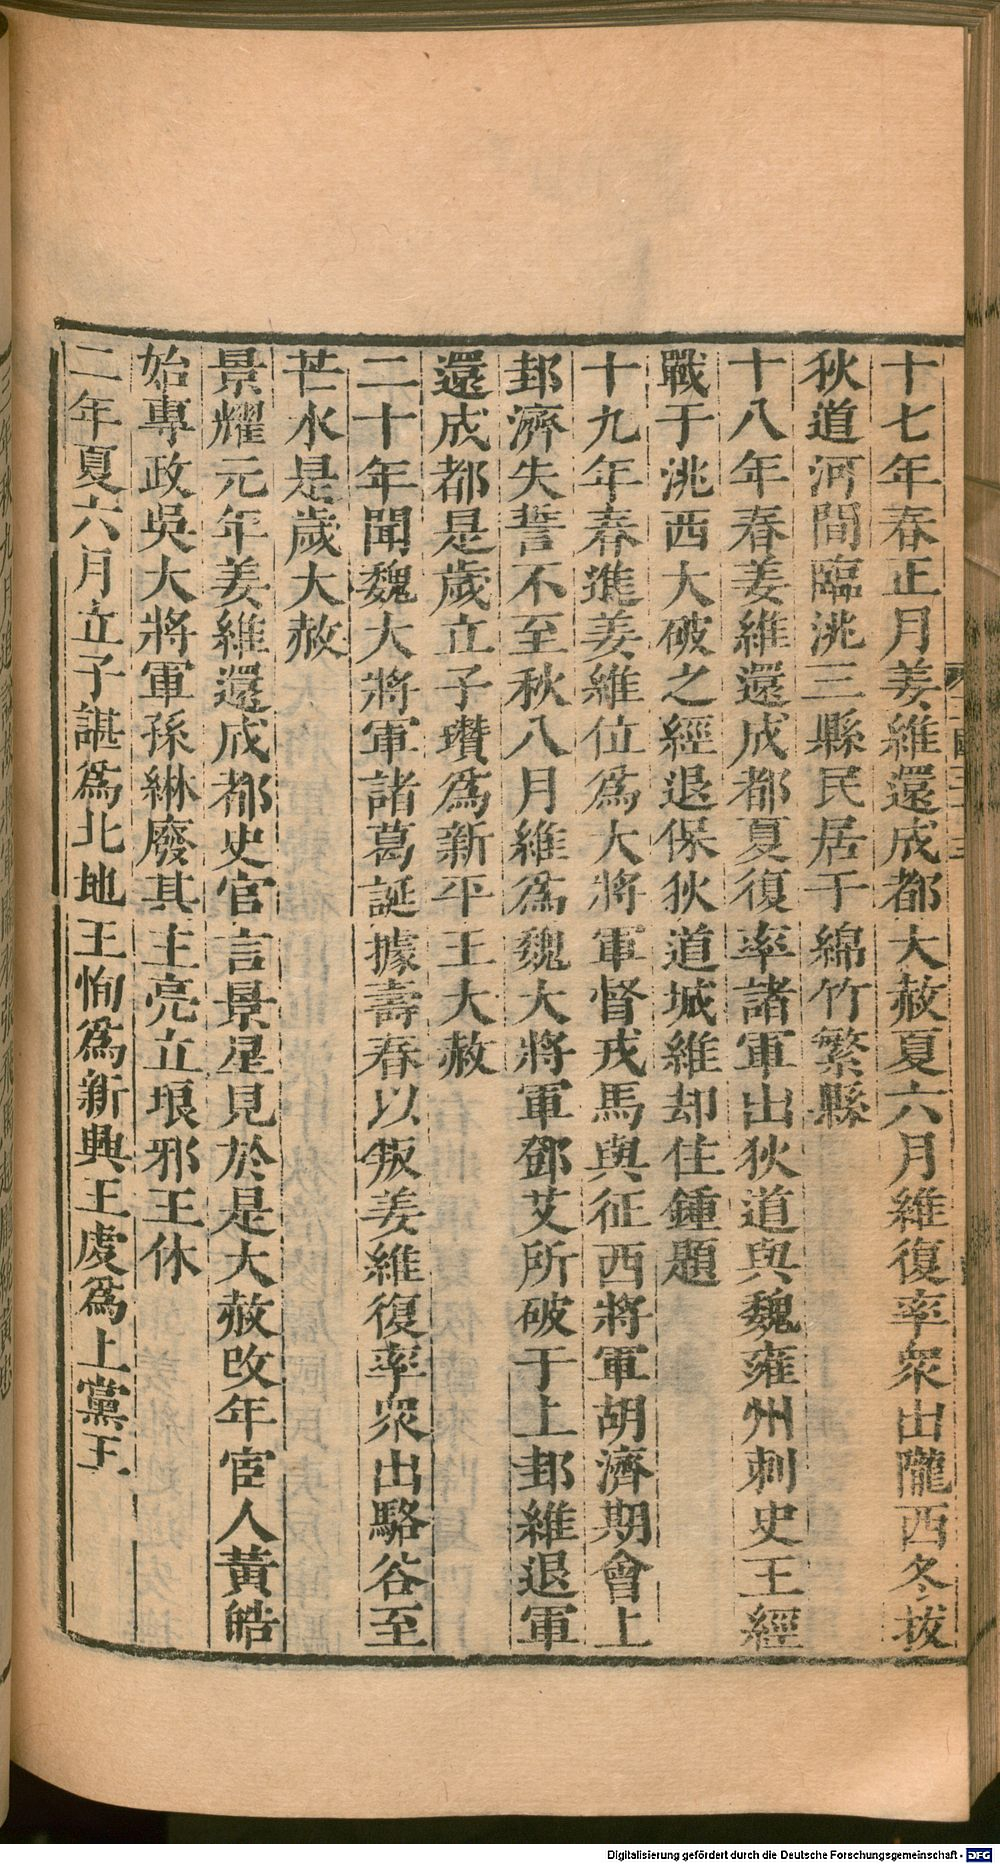 十七年春正月姜維還成都大赦夏六月維復率衆出隴西冬拔
狄道河間臨洮三縣民居于綿竹繁縣
十八年春姜維還成都夏復率諸軍出狄道與魏雍州刺史王經
戰于洮西大破之經退保狄道城維却住鍾題
十九年春進姜維位爲大將軍督戎馬與征西將軍胡濟期會上
邽濟失誓不至秋八月維爲魏大將軍鄧艾所破于上邽維退軍
還成都是歲立子瓚爲新平王大赦
二十年聞魏大將軍諸葛誕據壽春以叛姜維復率衆出駱谷至
芒水是歲大赦
景耀元年姜維還成都史官言景星見於是大赦改年宦人黃皓
始專政吳大將軍孫綝廢其主亮立琅邪王休
二年夏六月立子諶爲北地王恂爲新興王虔爲上黨王
Digitalisierung gefördert durch die Deutsche Forschungsgemeinschaft - DFG